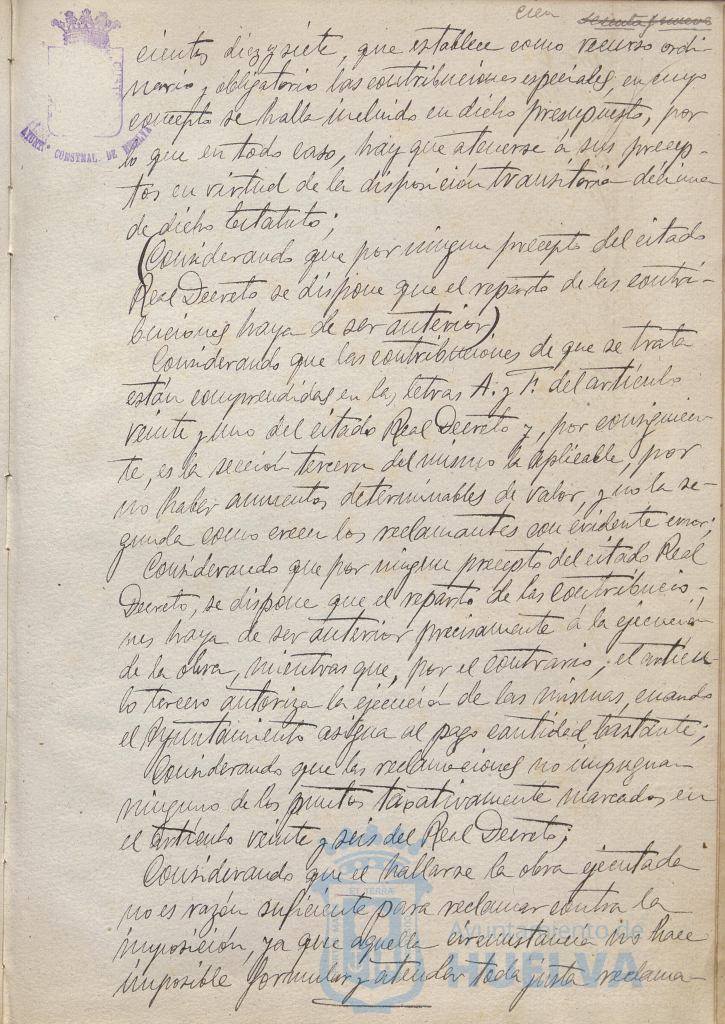 cien sesenta y nueve
AYUNT° CONSTNAL. DE HUELVA
cientos diez y siete, que establece como recurso ordi-
nario y obligatorio las contribuciones especiales, en cuyo
concepto se halla incluido en dicho presupuesto, por
lo que en todo caso, hay que atenerse á sus precep-
tos en virtud de la disposición transitoria décima
de dicho Estatuto;
(Considerando que por ningun precepto del citado
Real Decreto se dispone que el reparto de las contri-
buciones haya de ser anterior)
Considerando que las contribuciones de que se trata
están comprendidas en las letras A. y F. del artículo
veinte y uno del citado Real Decreto y, por consiguien-
te, es la sección tercera del mismo la aplicable, por
no haber aumentos determinables de valor, y no la se-
gunda como creen los reclamantes con evidente error;
Considerando que por ningun precepto del citado Real
Decreto, se dispone que el reparto de las contribucio-
nes haya de ser anterior precisamente á la ejecución
de la obra, mientras que, por el contrario, el artícu
lo tercero autoriza la ejecución de las mismas, cuando
el Ayuntamiento asigna al pago cantidad bastante;
Considerando que las reclamaciones no impugnan
ninguno de los puntos taxativamente marcados en
el artículo veinte y seis del Real Decreto;
Considerando que el hallarse la obra ejecutada
no es razón suficiente para reclamar contra la
imposición, ya que aquella circunstancia no hace
imposible formular y atender toda justa reclama-
Ayuntamiento de
HUELVA